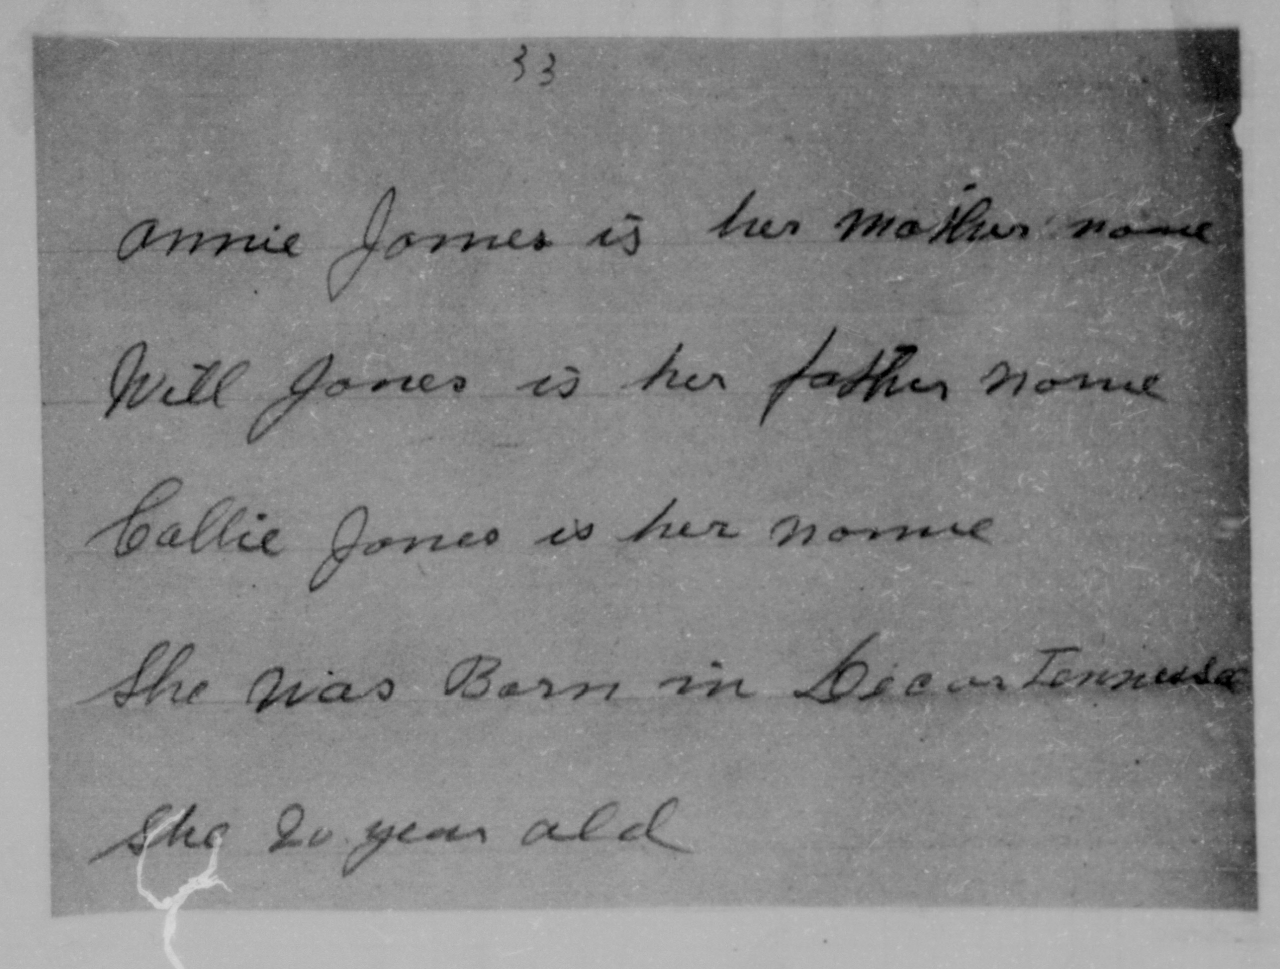 33
Annie Jones is her mother name
Will Jones is her father name
Callie Jones is her name
She was Born in Decar Tennessee
She 20 year old